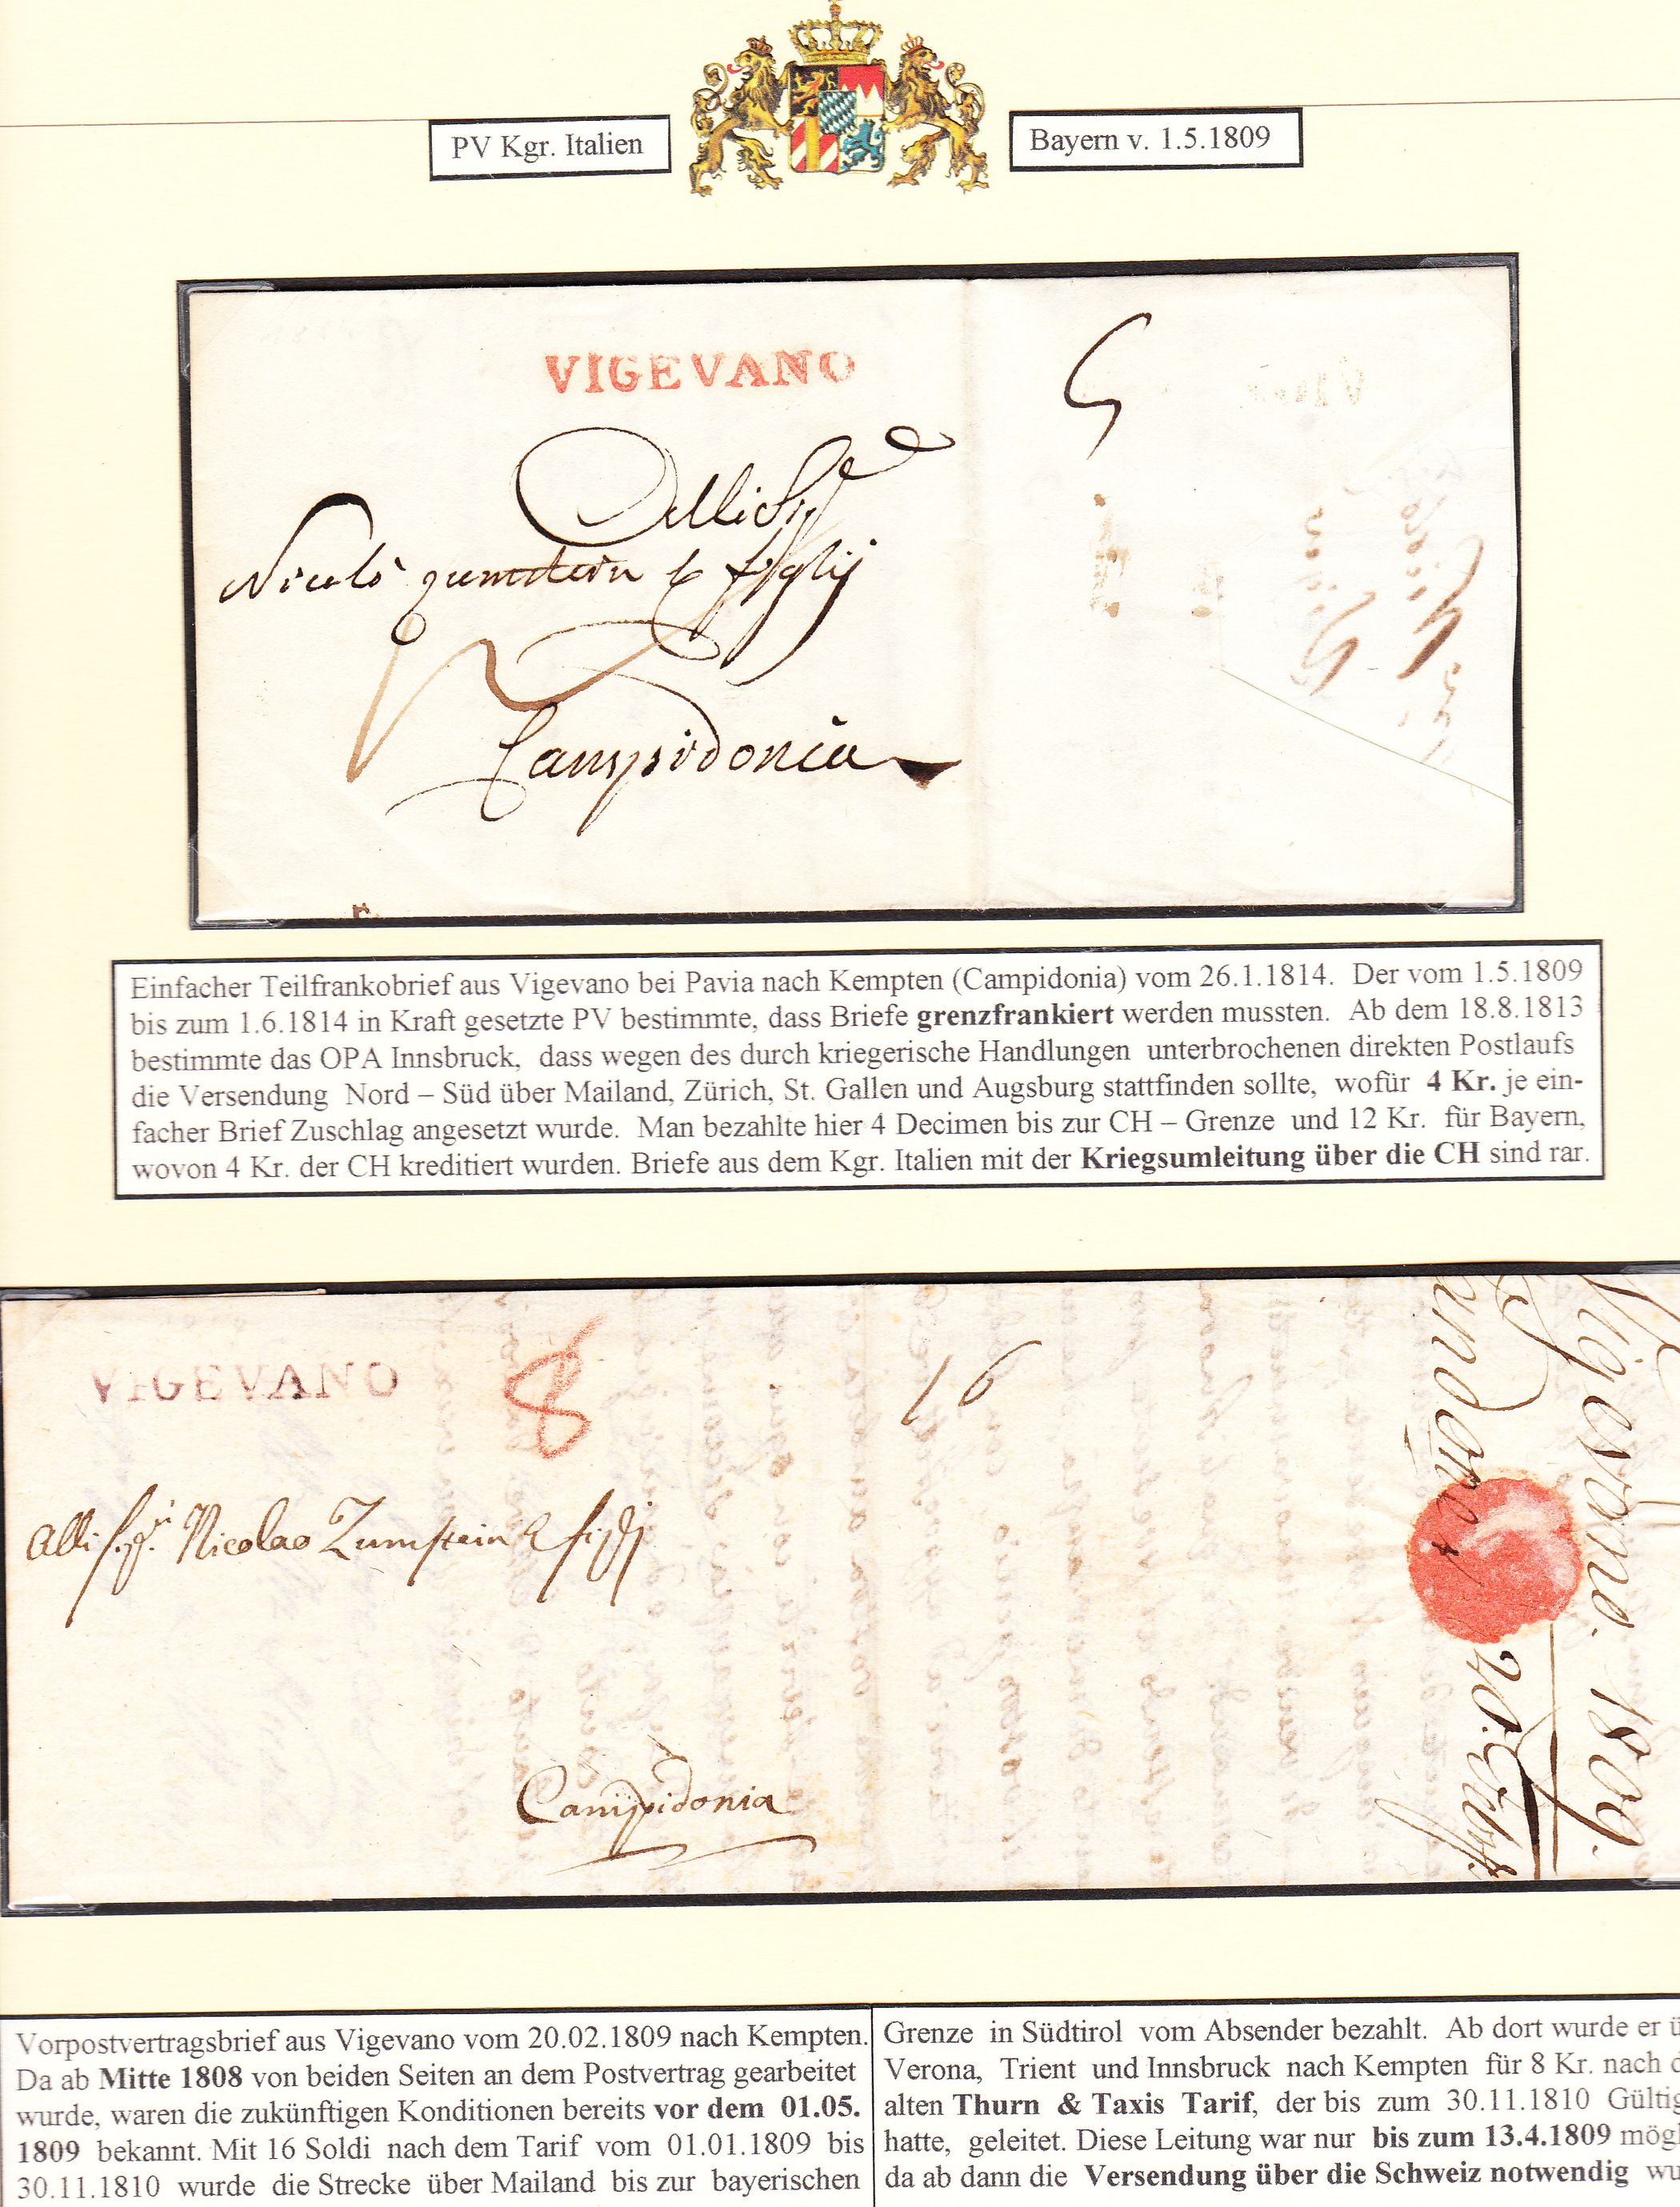 PV Kgr. Italien
Bayern v. 1.5.1809
VIGEVANO
Nicolò zumstein e figlij
Campidonia
Einfacher Teilfrankobrief aus Vigevano bei Pavia nach Kempten (Campidonia) vom 26.1.1814. Der vom 1.5.1809
bis zum 1.6.1814 in Kraft gesetzte PV bestimmte, dass Briefe grenzfrankiert werden mussten. Ab dem 18.8.1813
bestimmte das OPA Innsbruck, dass wegen des durch kriegerische Handlungen unterbrochenen direkten Postlaufs
die Versendung Nord – Süd über Mailand, Zürich, St. Gallen und Augsburg stattfinden sollte, wofür 4 Kr. je ein-
facher Brief Zuschlag angesetzt wurde. Man bezahlte hier 4 Decimen bis zur CH – Grenze und 12 Kr. für Bayern,
wovon 4 Kr. der CH kreditiert wurden. Briefe aus dem Kgr. Italien mit der Kriegsumleitung über die CH sind rar.
VIGEVANO
8
16
Alli Sigri. Nicolao Zumstein e figlj
Campidonia
Vigevano. 1809.
20.
Vorpostvertragsbrief aus Vigevano vom 20.02.1809 nach Kempten.
Da ab Mitte 1808 von beiden Seiten an dem Postvertrag gearbeitet
wurde, waren die zukünftigen Konditionen bereits vor dem 01.05.
1809 bekannt. Mit 16 Soldi nach dem Tarif vom 01.01.1809 bis
30.11.1810 wurde die Strecke über Mailand bis zur bayerischen
Grenze in Südtirol vom Absender bezahlt. Ab dort wurde er ü
Verona, Trient und Innsbruck nach Kempten für 8 Kr. nach d
alten Thurn & Taxis Tarif, der bis zum 30.11.1810 Gültig
hatte, geleitet. Diese Leitung war nur bis zum 13.4.1809 mögl
da ab dann die Versendung über die Schweiz notwendig wu